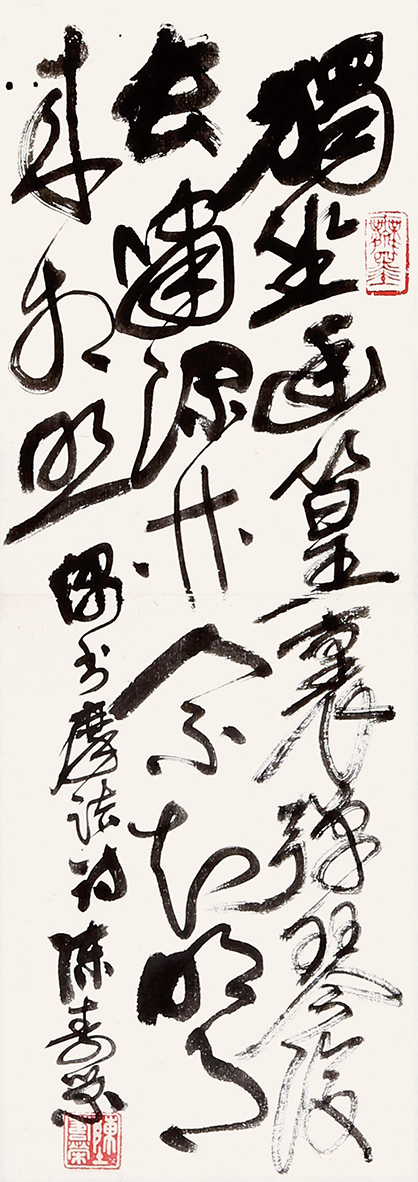 獨坐幽篁裏彈琴復
長嘯深林人不知明月
來相照 偶書摩詰詩 陳壽榮